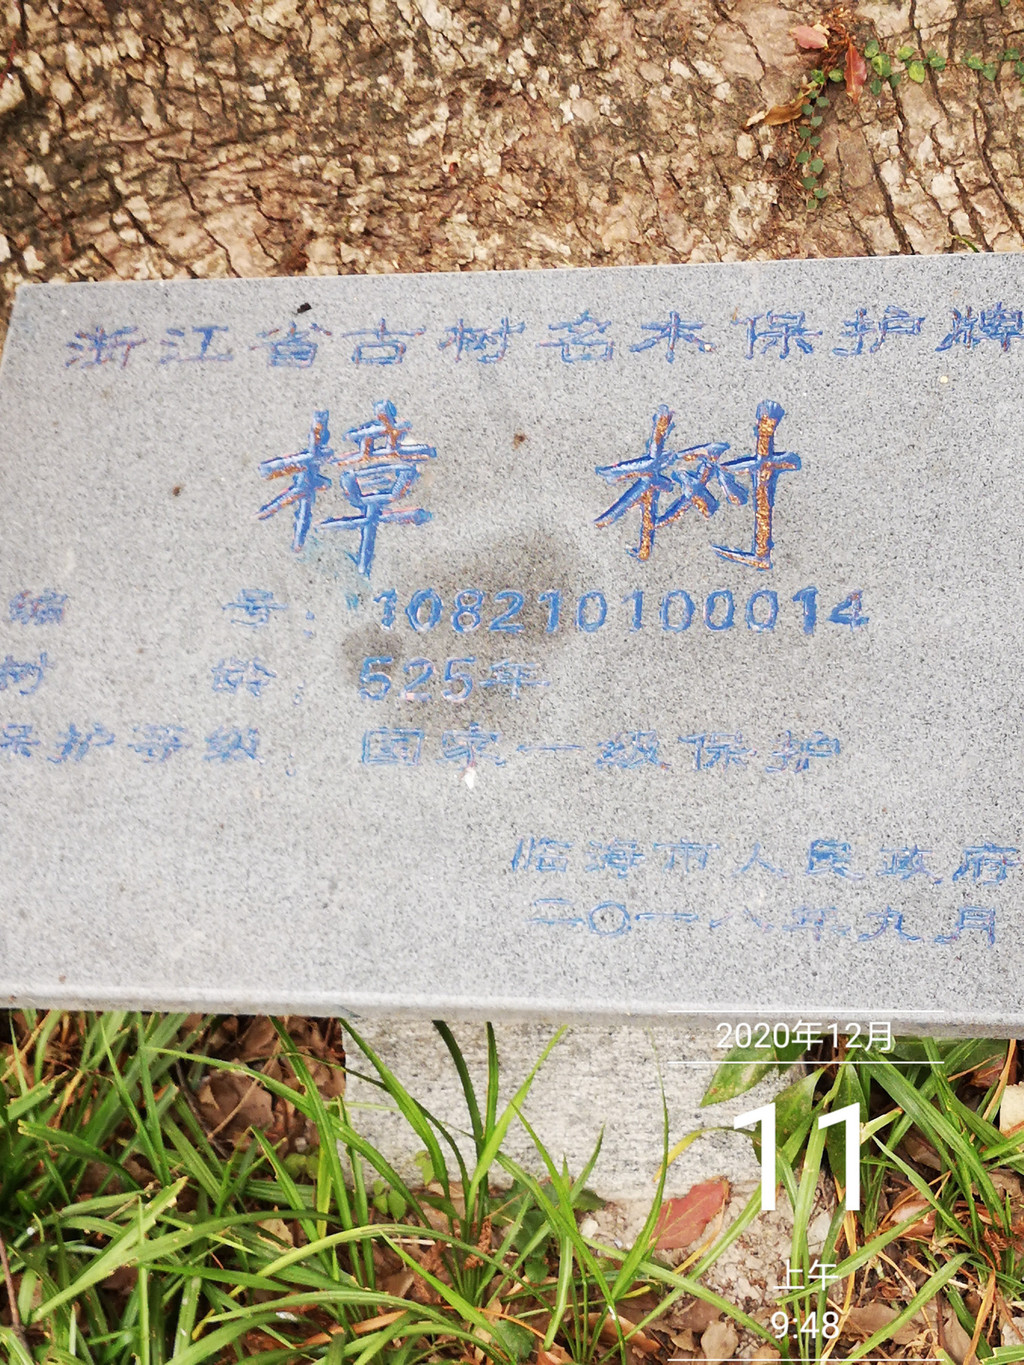 浙江省古树名木保护牌
樟树
编号：108210100014
树龄：525年
保护等级：国家一级保护
临海市人民政府
二〇一八年九月
2020年12月
11
上午
9:48